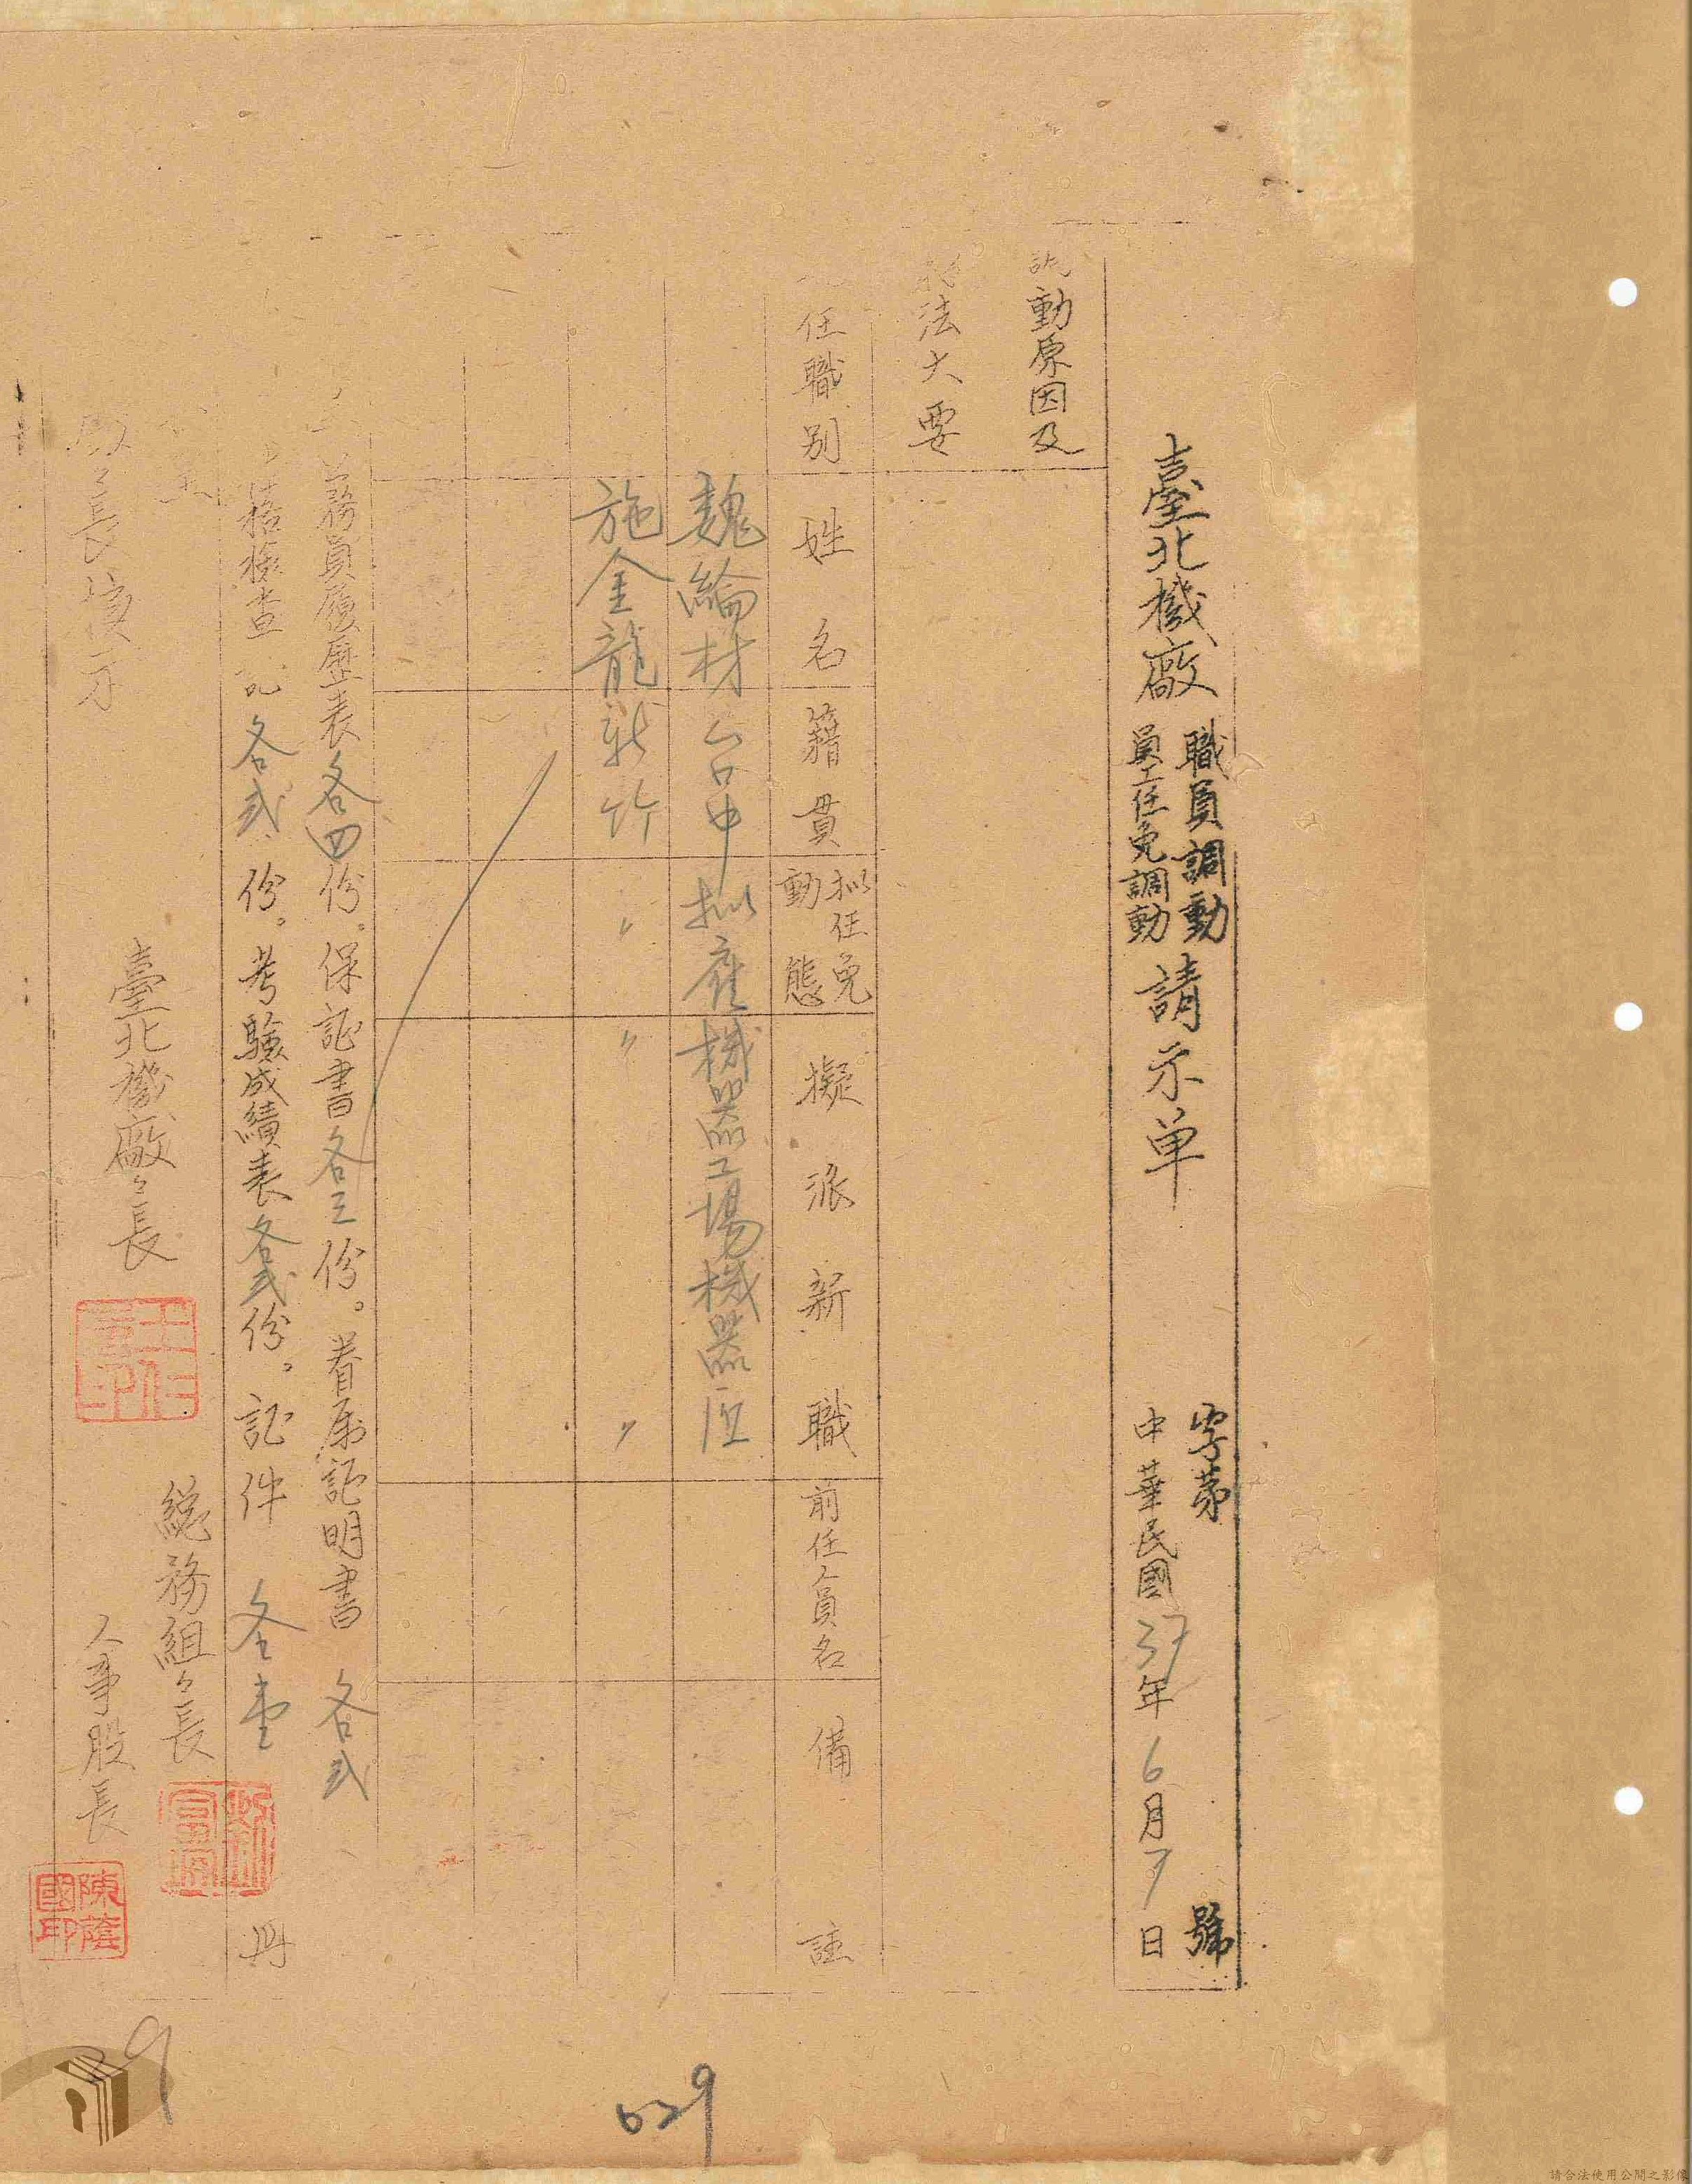 臺北機廠
職員調動
員工任免調動
請示单
字苐
號
中華民國37年6月7日
動原因及
法大要
任職別
姓名
籍貫
拟任免
動態
擬派新職
前任人員名
備註
魏綸材
台中
拟雇
機器工場機器匠
施金龍
新竹
〃
〃
〃
務員履歷表各四份。保証書各三份。眷屬証明書 各弍
格檢查
各弍份。考驗成績表各弍份。証件 各壹
總務組々長
臺北機廠々長
人事股長
陳蔭
國印
長
029
29
請合法使用公開之影像